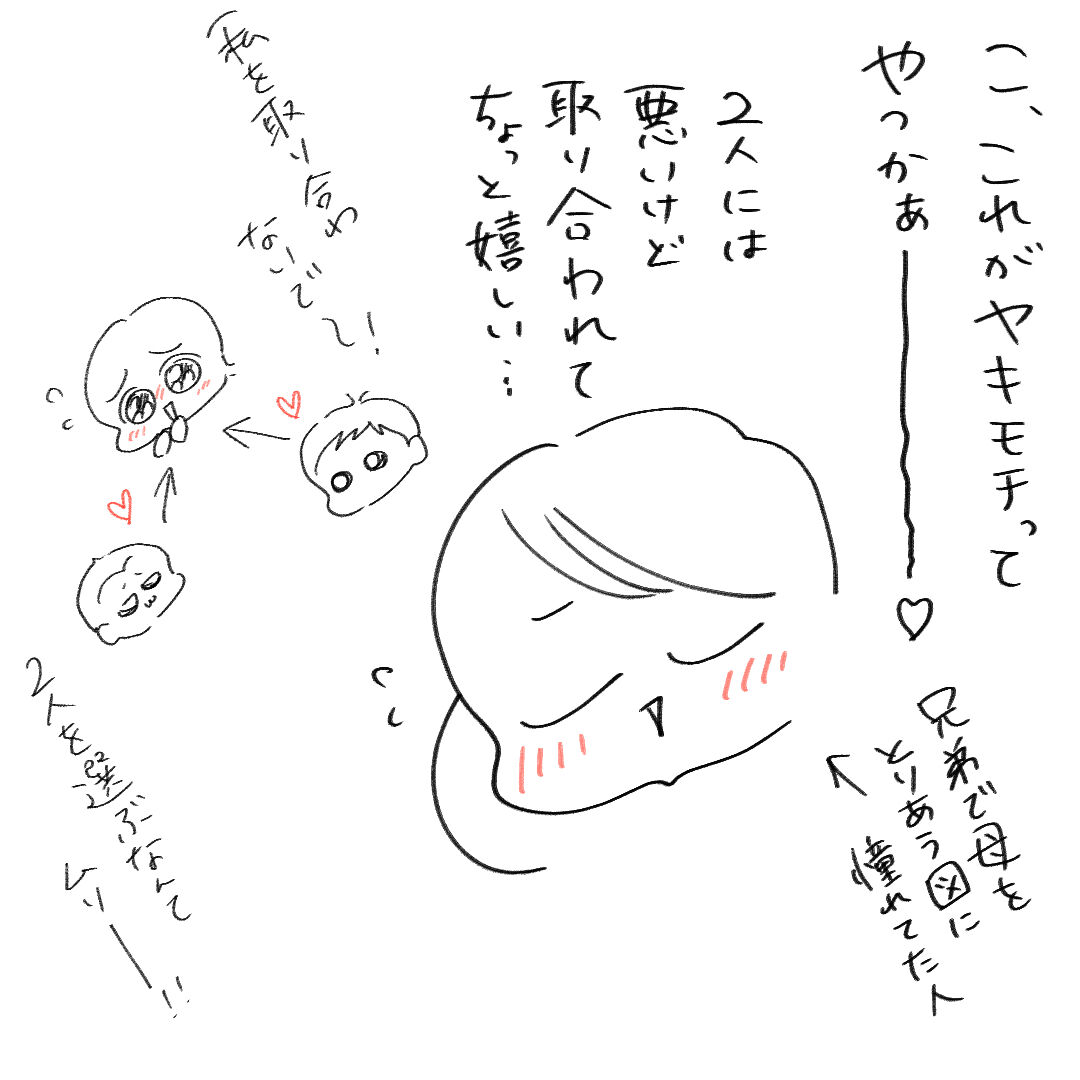 こ、これがヤキモチって
やっかぁ――――♡
2人には
悪いけど
取り合われて
ちょっと嬉しい…
私を取り合わ
ないで〜!
2人を選ぶなんて
ムリ――!!
兄弟で母を
とりあう図に
憧れてた人